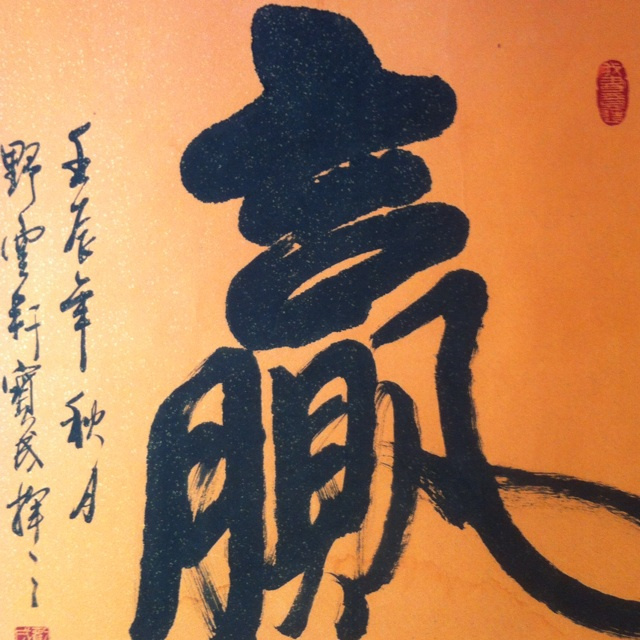 贏
壬辰年秋月
野雲軒寶民揮之